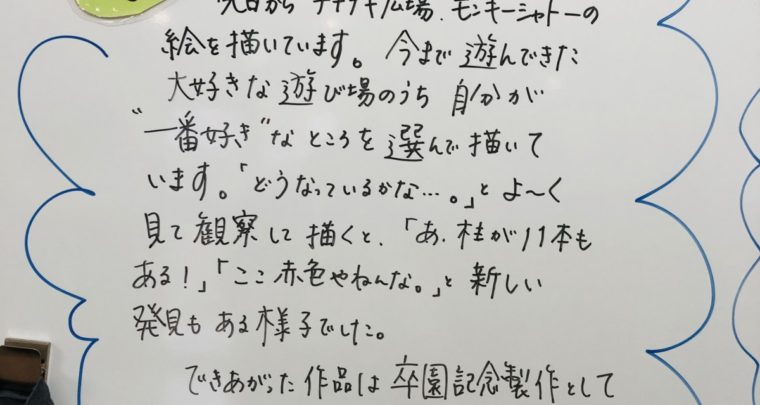 先日から チャチャ広場、モンキーシャトーの
絵を描いています。今まで遊んできた
大好きな遊び場のうち 自分が
"一番好き"なところを選んで描いて
います。「どうなっているかな…。」と よ〜く
見て観察して描くと、「あ、柱が11本も
ある!」「ここ赤色やねんな。」と新しい
発見もある様子でした。
できあがった作品は卒園記念製作として